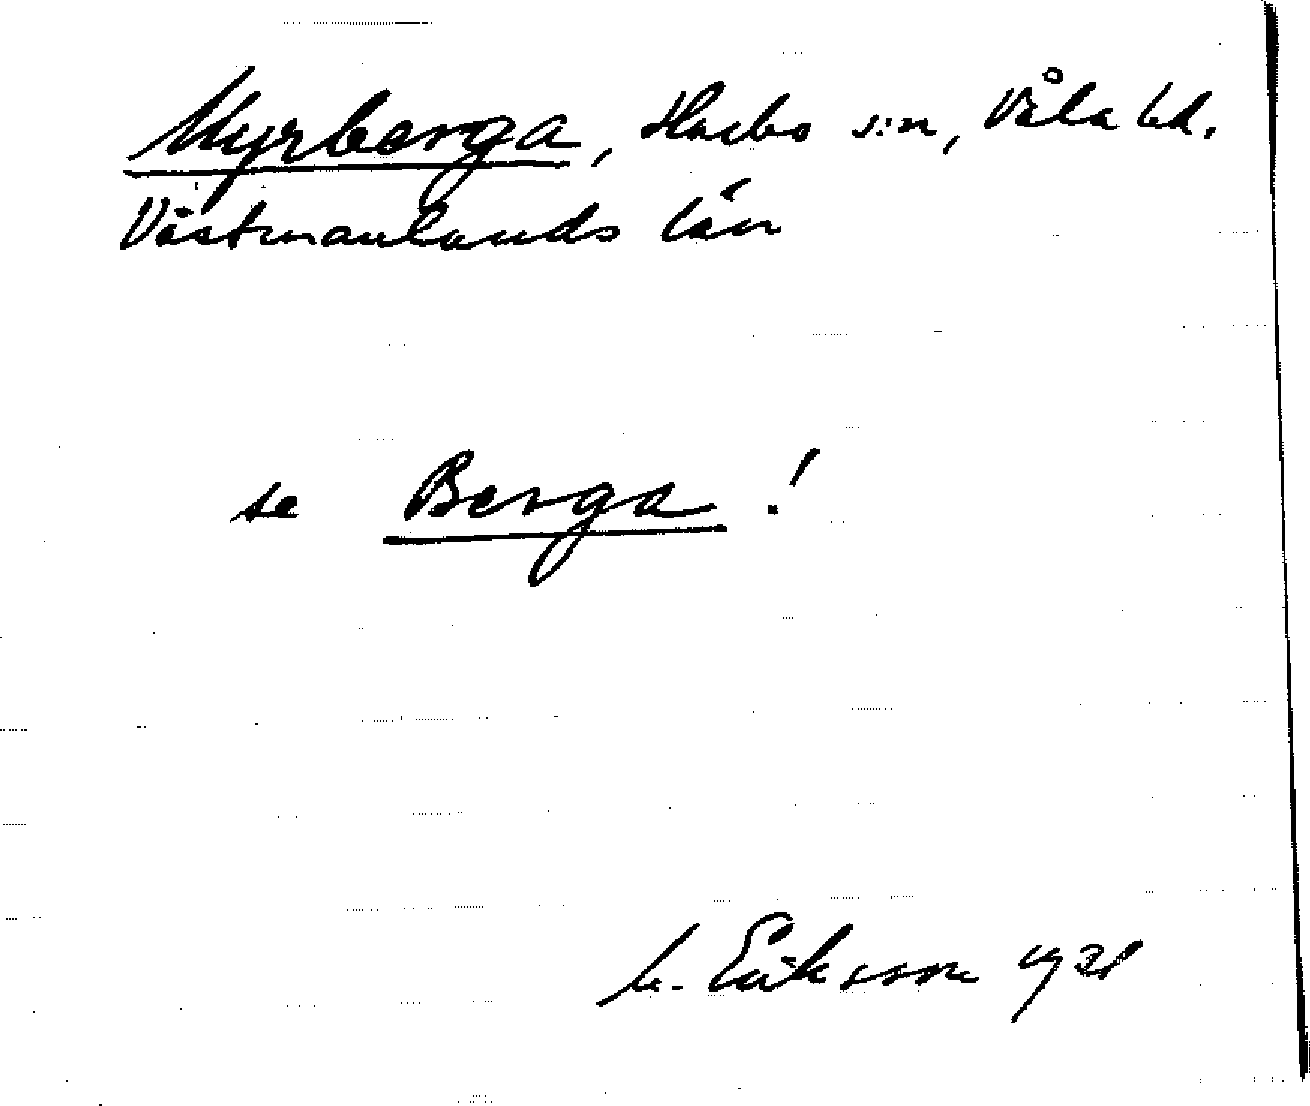 Myrberga, Harbo s:n, Våla hd.
Västmanlands län
se Berga!
M. Eriksson 1931